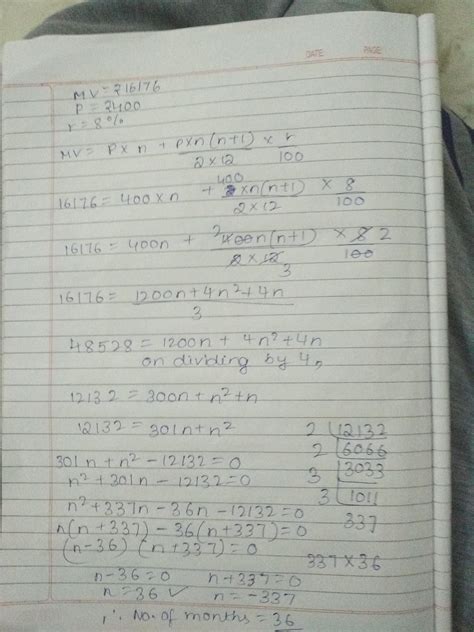 DATE: PAGE:
MV = ₹16176
P = ₹400
r = 8%
MV = P × n + P×n(n+1)/2×12 × r/100
16176 = 400×n + 400×n(n+1)/2×12 × 8/100
16176 = 400n + 2 400n(n+1)/2×12 3 × 8 2/100
16176 = 1200n+4n²+4n/3
48528 = 1200n + 4n²+4n
on dividing by 4,
12132 = 300n+n²+n
12132 = 301n+n²
301n+n²-12132=0
n²+301n-12132=0
n²+337n-36n-12132=0
n(n+337)-36(n+337)=0
(n-36) (n+337)=0
n-36=0 n+337=0
n=36 ✓ n=-337
∴ No. of months = 36
2 12132
2 6066
3 3033
3 1011
337
337×36